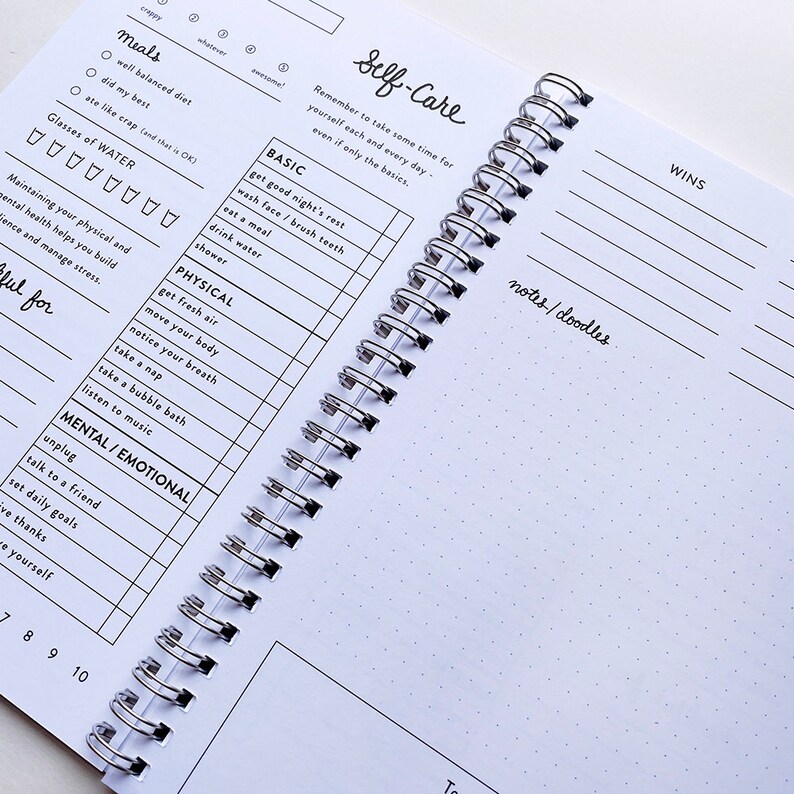 ① ② ③ ④ ⑤
crappy whatever awesome!
Meals
well balanced diet
did my best
ate like crap (and that is OK)
Glasses of WATER
Maintaining your physical and
health helps you build
and manage stress.
for
Self-Care
Remember to take some time for
yourself each and every day -
even if only the basics.
BASIC
get good night's rest
wash face / brush teeth
eat a meal
drink water
shower
PHYSICAL
get fresh air
move your body
notice your breath
take a nap
take a bubble bath
listen to music
MENTAL / EMOTIONAL
unplug
talk to a friend
set daily goals
thanks
yourself
7 8 9 10
WINS
notes/doodles